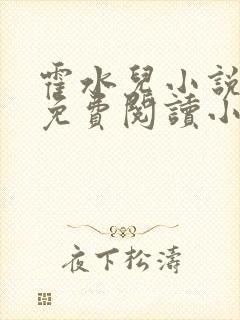 霍水兒小說
免費閱讀小
夜下松濤